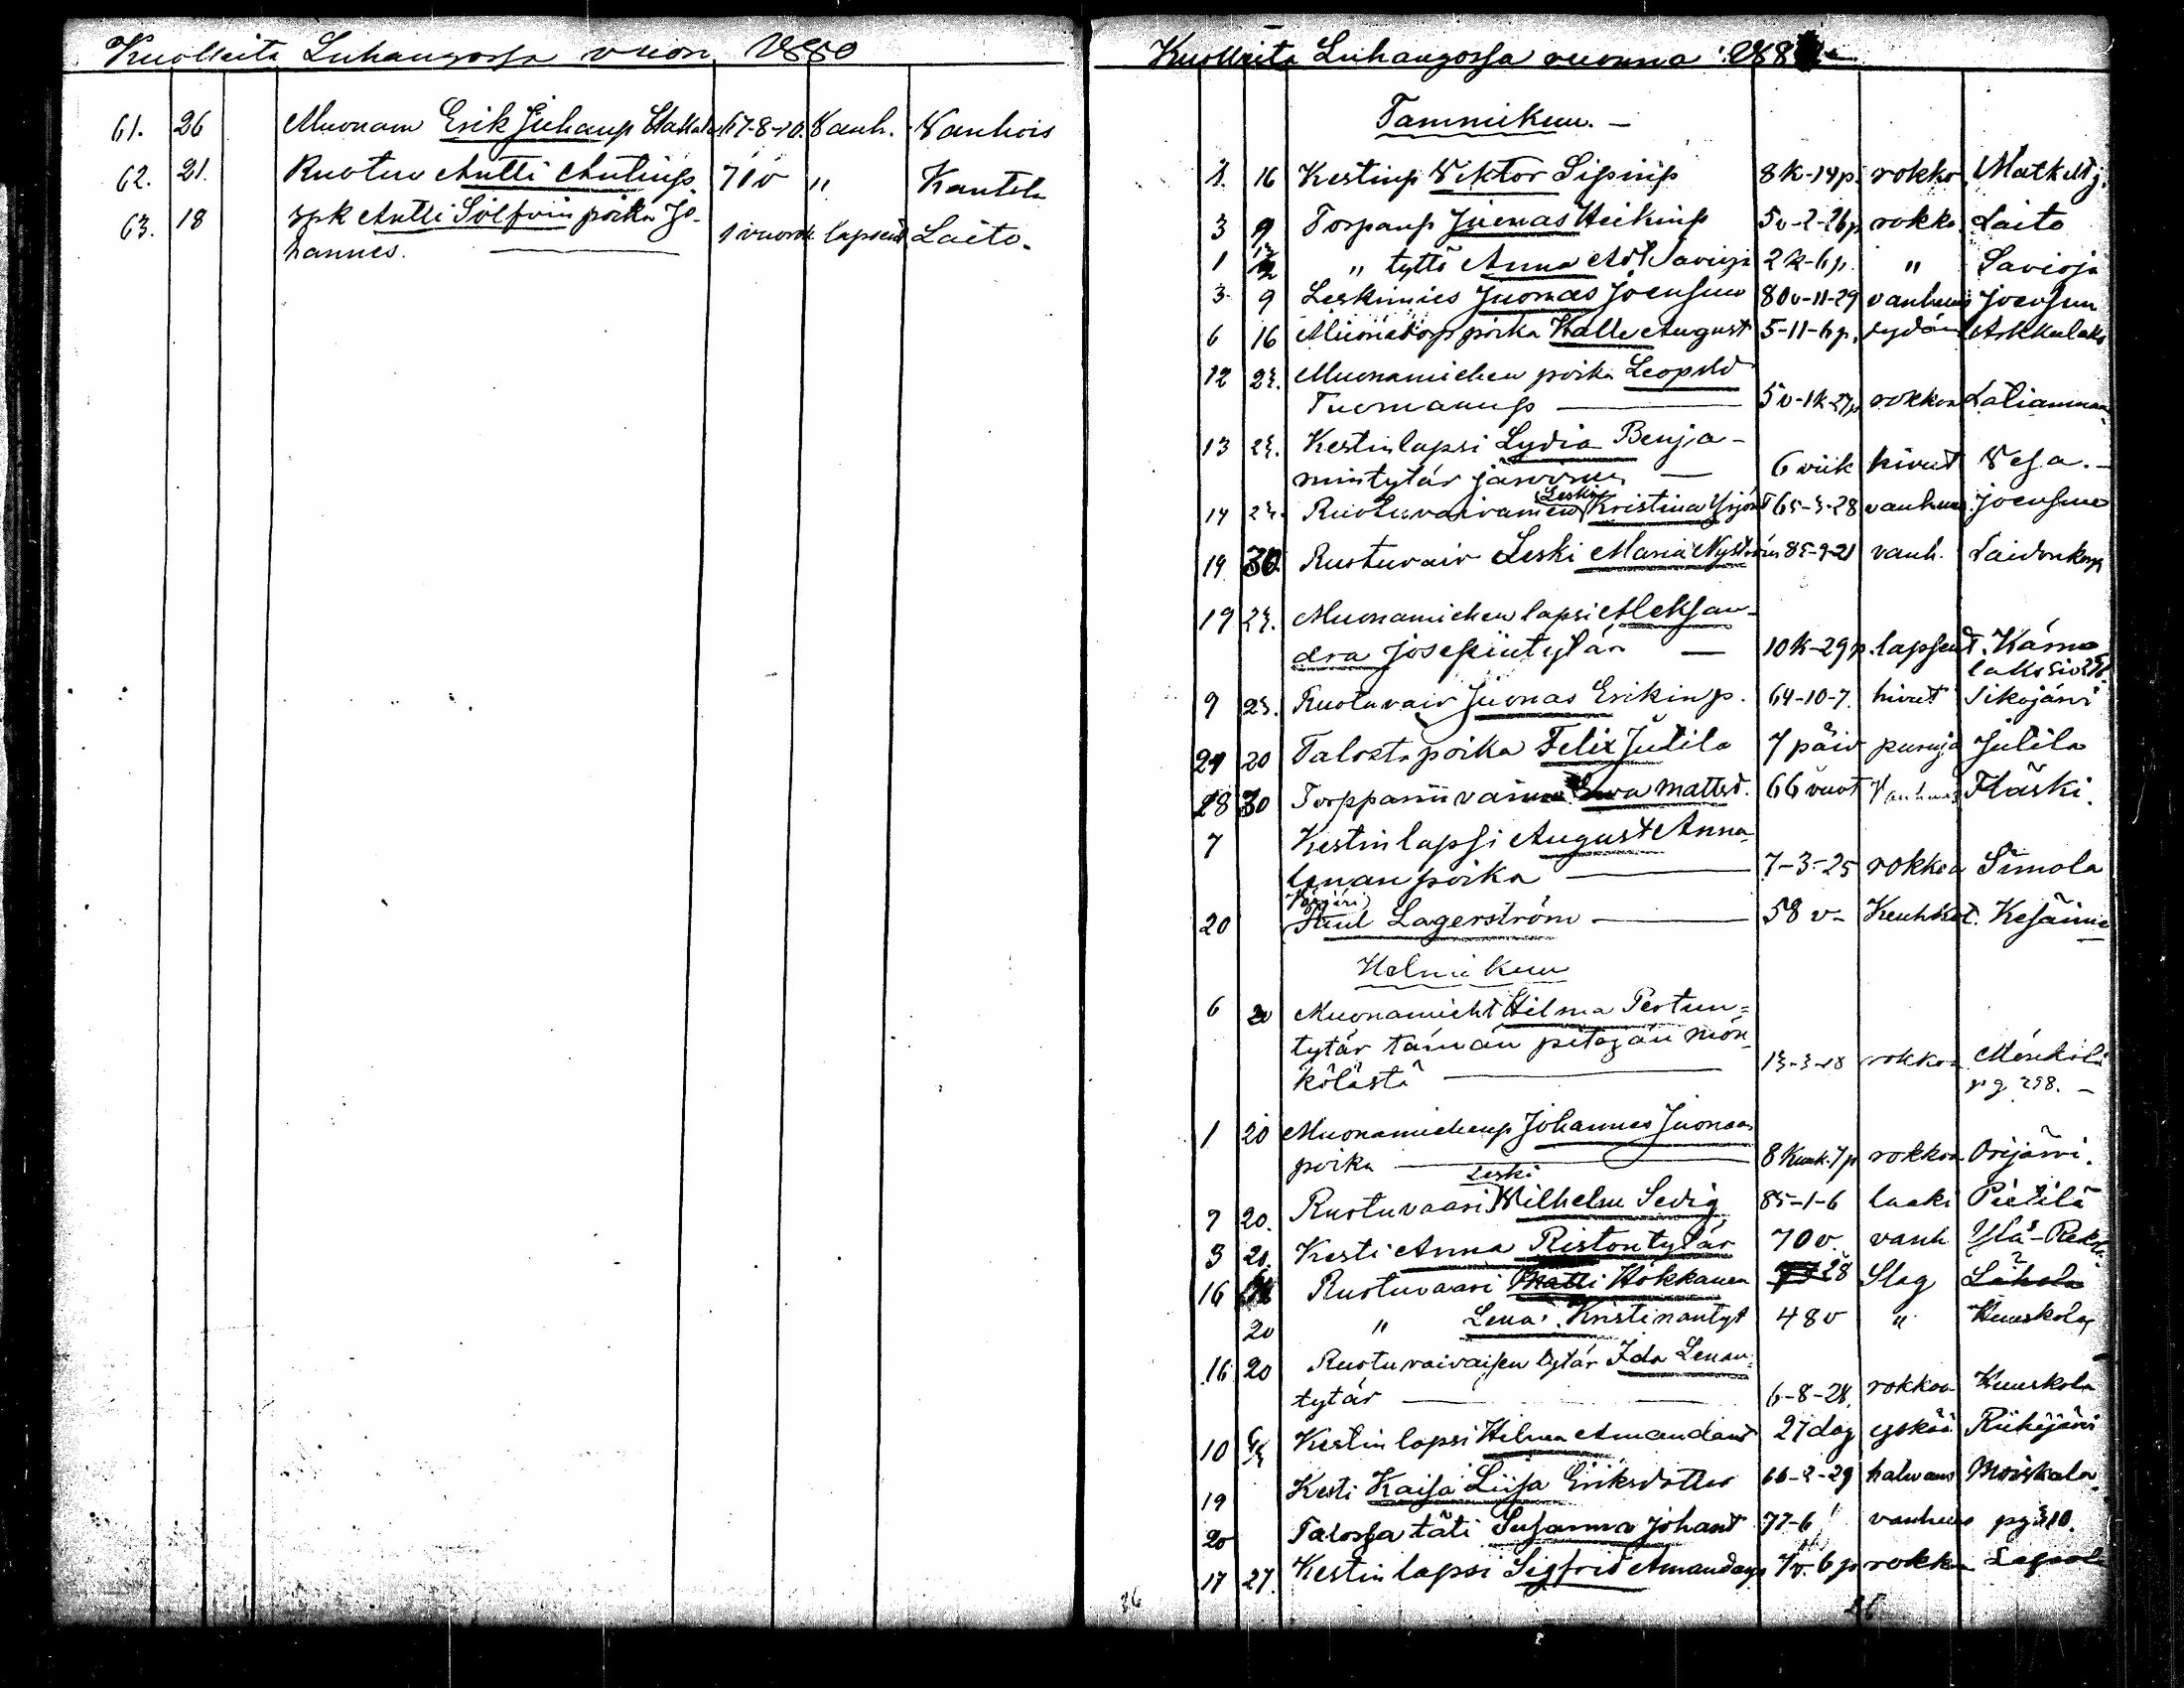 Kuolleita Luhangossa vuon 1880
61. 26 Muonam Erik Juhanp 67-8-20. Vanh. Vanhois
62. 21. Ruotuv Antti Antinp. 71 v " Kantola
63. 18 spk Antti Sölfvin poika Jo- 1 vuorok lapsent Laito-
hannes.
Kuolleita Luhangossa vuonna 188
Tammikuu. -
16 Kestinp Viktor Sipinp 8 k-14 p. rokko
3 9 Torpanp Juonas Heikinp 5v-2-26p rokko Laito
1 " tyttö Anna Savioja 2 k-6p. " Savioja
3 9 Leskimies Juonas Joensuu 80v-11-29 vanhuus Joensuu
6 16 poika Kalle August 5-11-6p. sydän
12 23. Muonamiehen poika Leopold
Tuomanp 5v-1k-27p rokkoa
13 23. Kestinlapsi Lydia Benja-
mintytär 6 viik kivut Vesa. -
14 23. Ruotuvaivainen Leski Kristina Yrjönt 65-3-28 vanhuus Joensuu
19 30. Ruotuvaiv Leski Maria Nyström 85-9-21 vanh. Laidonkorp
19 23. Muonamiehen lapsi Aleksan-
dra Josefiintytär 10k-29p. lapsent. Kärno
9 23. Ruotuvaiv Juonas Erikinp. 64-10-7. kivut Sikojärvi
24 20 Talost. poika Felix Jutila 7 päiv Jutila
28 30 Torppariin vaimo Eva Mattest. 66 vuot Vanhuus Fläski.
7 Kestinlapsi August Anna-
lenan poika 7-3-25 rokkoa Simola
Värjäri
20 Paul Lagerström 58 v- Keuhkot.
Helmikuu
6 20 Muonamieht Hilma Pertun=
tytär tämän pitäjän Mön-
kölästä 13-3-18 rokkoa Mönkölä
pg 298. -
1 20 Muonamiehenp Johannes Juonaan
poika 8 kuuk. 7 p rokkoa Orijärvi.
Leski
7 20. Ruotuvaari Wilhelm Sedig 85-1-6 Pietilä
3 20. Kesti Anna Ristontytär 70 v. vanh Ylä-
16 Ruotuvaari Matti Hökkanen 28 Slag
20 " Lena Kristinantyt 48 v " Kuuskola
16 20 Ruotuvaivaisen tytär Ida Lenan=
tytär 6-8-28. rokkoa Kuuskola
10 Kestinlapsi Hilma Amandant 27 dag yskää
19 Kesti Kaisa Liisa Eriksdotter 66-2-29 halvaus
20 Talossa täti Susanna Johant 77-6 vanhuus pg 310.
17 27. Kestin lapsi Sigfrid Amandanp 7v. 6p rokkoa
36 26